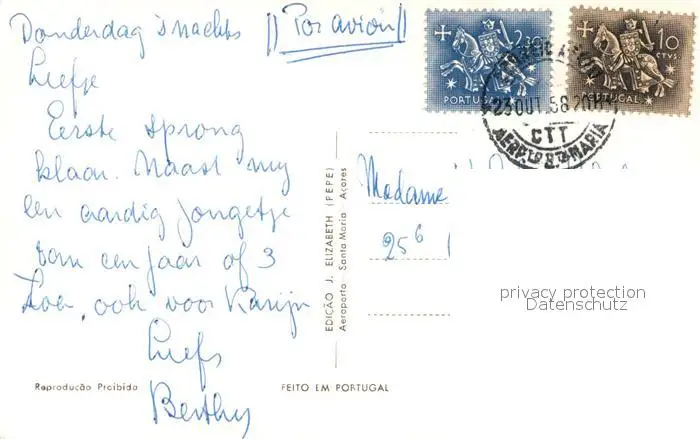 Donderdag 's nachts
Par avion
Liefje
Eerste sprong
klaar. Naast mij
een aardig jongetje
van een jaar of 3
ook voor Karijn
Liefs
EDIÇÃO J. ELIZABETH (PEPE)
Aeroporto Santa Maria Açores
Reprodução Proibida
FEITO EM PORTUGAL
PORTUGAL
10
CTVS.
PORTUGAL
23 OUT. 58
CTT
Madame
25 b
privacy protection
Datenschutz